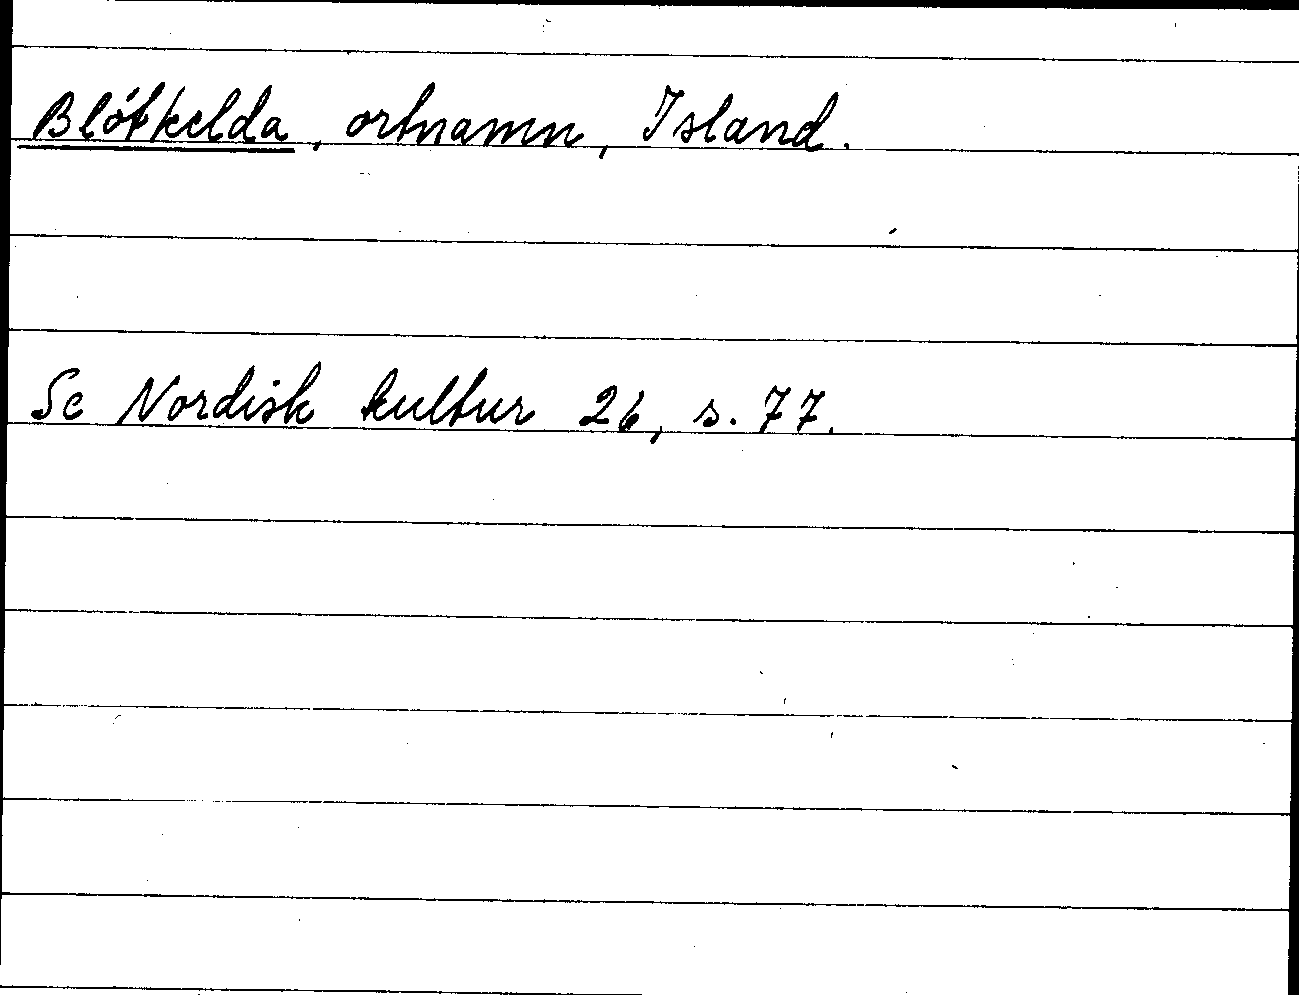 Blótkelda, ortnamn, Island.
Se Nordisk kultur 26, s. 77.